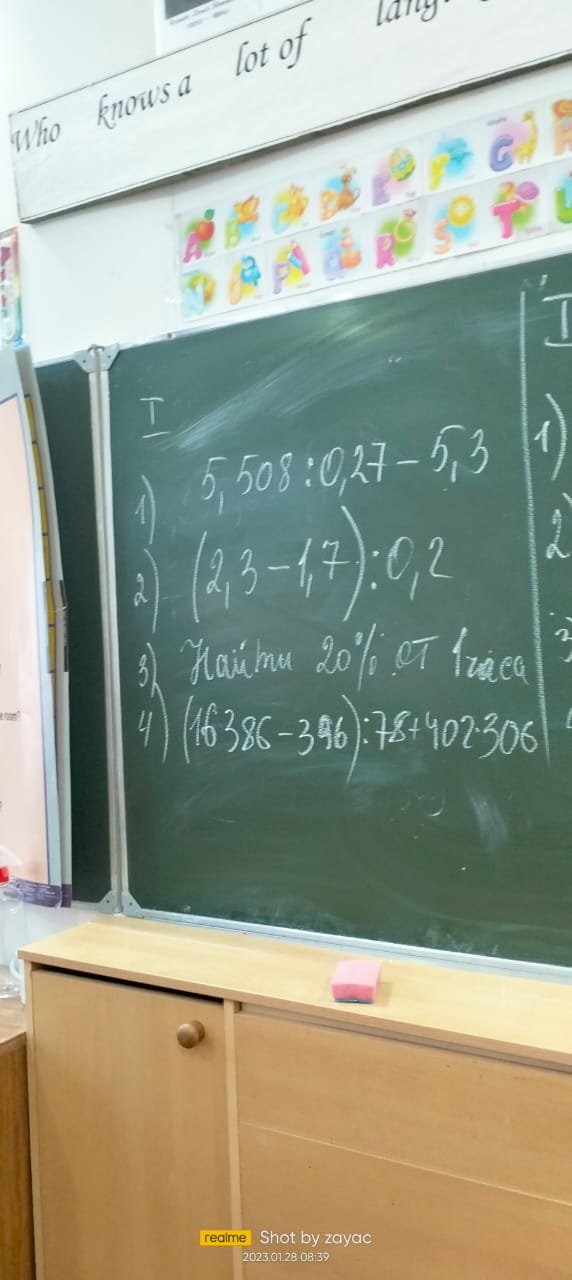 Who knows a lot of
A B C D E F G H
N O P Q R S T U
I
1) 5,508:0,27-5,3
2) (2,3-1,7):0,2
3) Найти 20% от 1 часа
4) (16386-396):78+402·306
I
1)
2)
3
realme Shot by zayac
2023.01.28 08:39